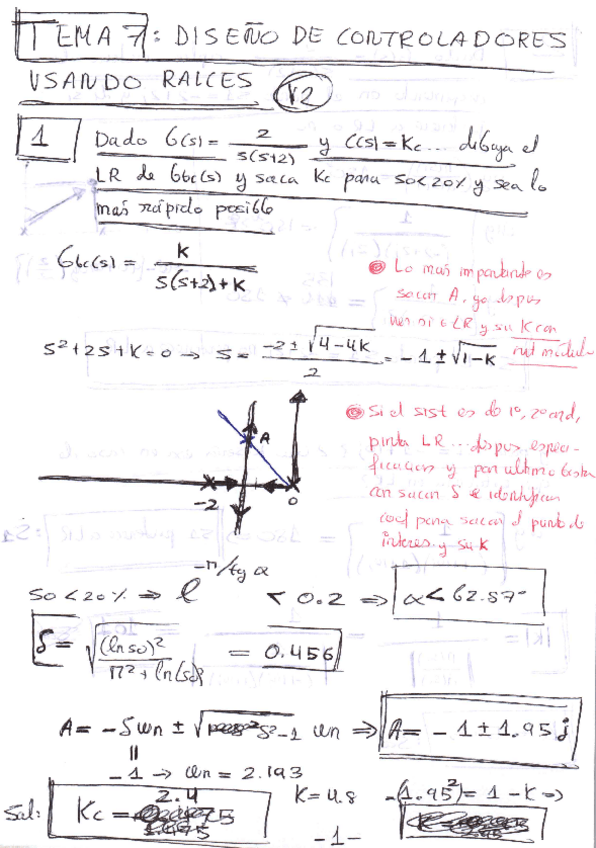 TEMA 7: DISEÑO DE CONTROLADORES
USANDO RAICES V2
1 Dado G(s) = 2/s(s+2) y C(s) = Kc... dibuja el
LR de Gbc(s) y saca Kc para so<20% y sea lo
más rápido posibl
Gbc(s) = K/s(s+2)+K
Lo mas importante es
sacar A, ya despues
ver si ∈ LR y su K con
crit modulo
s²+2s+K=0 → s = -2±√4-4K/2 = -1±√1-K
Si el sist es de 1º, 2º ord,
pinta LR... despues especi-
ficacion y por ultimo basta
con sacar S e identificar
coef para sacar el punto de
interes y su K
A
-2
0
so<20% ⇒ e^-π/tg α < 0.2 ⇒ α<62.87º
δ = √(ln so)²/π²+ln(so)² = 0.456
A = -δωn ± √δ²-1 ωn ⇒ A = -1±1.95j
-1 → ωn = 2.193
Sol: Kc = 2.4
K=4.8
-(1.95²) = 1-K ⇒
-1-